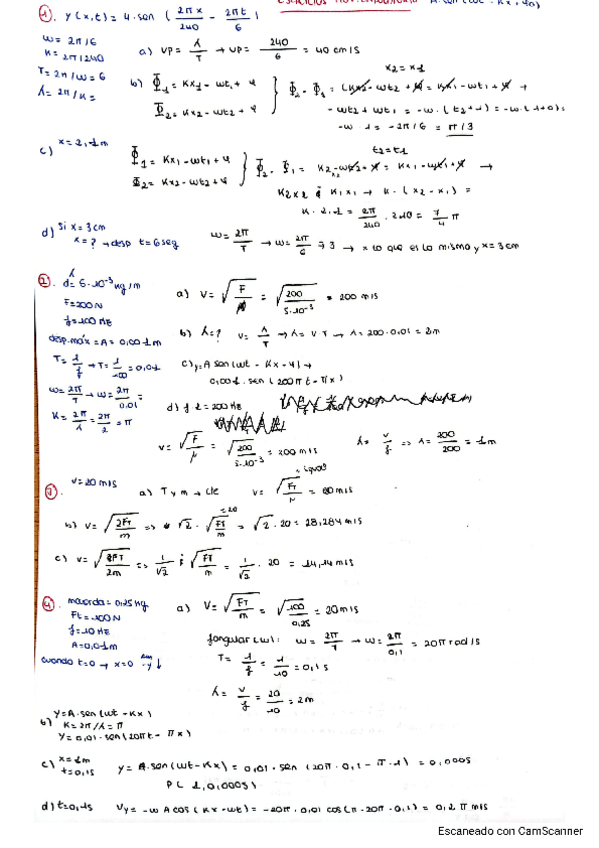 1. y(x,t) = 4·sen (2πx/240 - 2πt/6)
w = 2π/6
K = 2π/240
T = 2π/w = 6
λ = 2π/K =
a) Vp = λ/T → Vp = 240/6 = 40 cm/s
x2 = x1
b) Φ1 = Kx1 - wt1 + φ
Φ2 = Kx2 - wt2 + φ
Φ2 - Φ1 = (Kx2 - wt2 + φ) = Kx1 - wt1 + φ →
- wt2 + wt1 = -w·(t2 + 1) = -w·(1+0) =
-w·1 = -2π/6 = π/3
c) x = 2,1m
t2 = t1
Φ1 = Kx1 - wt1 + φ
Φ2 = Kx2 - wt2 + φ
Φ2 - Φ1 = Kx2 - wt2 + φ = Kx1 - wt1 + φ →
Kx2 Kx1 → K·(x2 - x1) =
K·2,1 = 2π/240 · 210 = 7/4 π
d) Si x = 3cm
x = ? → desp t = 6seg
w = 2π/T → w = 2π/6 = 3 → x lo que es lo mismo y x = 3cm
2. d = 5·10⁻³ kg/m
F = 200N
f = 100 Hz
desp. máx = A = 0,001m
T = 1/f → T = 1/100 = 0,01
w = 2π/T → w = 2π/0,01 =
K = 2π/λ = 2π/2 = π
a) V = √(F/μ) = √(200/5·10⁻³) = 200 m/s
b) λ = ? V = λ/T → λ = V·T → λ = 200·0,01 = 2m
c) y = A sen(wt - Kx - φ) →
0,001·sen(200πt - πx)
d) f 2 = 200Hz
V = √(F/μ) = √(200/5·10⁻³) = 200 m/s
λ = V/f => λ = 200/200 = 1m
3. V = 20 m/s
a) T y m → cte V = √(FT/μ) =
igual
b) V = √(2FT/m) => √2 · √(FT/m) = √2·20 = 28,284 m/s
= 20
c) V = √(FT/2m) => 1/√2 · √(FT/m) = 1/√2 · 20 = 14,14 m/s
4. mcuerda = 0,25kg
Ft = 100N
f = 10 Hz
A = 0,01m
cuando t=0 → x=0 -y ↓
a) V = √(FT/m) = √(100/0,25) = 20m/s
fangular (w): w = 2π/T → w = 2π/0,1 = 20π rad/s
T = 1/f = 1/10 = 0,1s
λ = V/f = 20/10 = 2m
y = A·sen(wt - Kx)
b) K = 2π/λ = π
y = 0,01·sen(20πt - πx)
c) x = 1m
t = 0,1s
y = A·sen(wt - Kx) = 0,01·sen(20π·0,1 - π·1) = 0,0005
P(1, 0,0005)
d) t = 0,1s Vy = -w A cos(Kx - wt) = -20π·0,01 cos(π - 20π·0,1) = 0,2π m/s
Escaneado con CamScanner